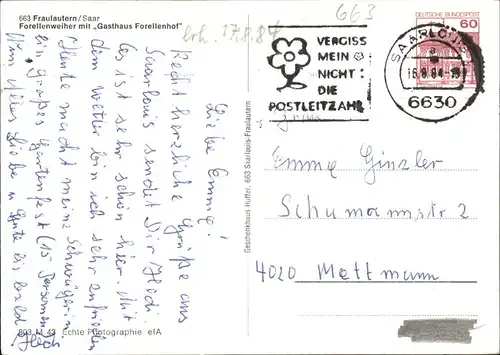 663 Fraulautern/Saar
Forellenweiher mit „Gasthaus Forellenhof"
erh. 17.8.84
663
VERGISS
MEIN
NICHT:
DIE
POSTLEITZAHL
SAARLOUIS
16.8.84
6630
DEUTSCHE BUNDESPOST
60
Liebe Emmy!
Recht herzliche Grüße aus
Saarlouis sendet Dir Hedi.
Es ist sehr schön hier. Mit
dem Wetter bin ich sehr zufrieden
Heute macht meine Schwägerin
ein großes Gartenfest (15 Personen)
Nun alles Liebe u. Gute bis bald Hedi
Geschenkhaus Huffer, 663 Saarlouis-Fraulautern
Emmy Ginzler
Schumannstr. 2
4020 Mettmann
803 M 43 Echte Photographie elA